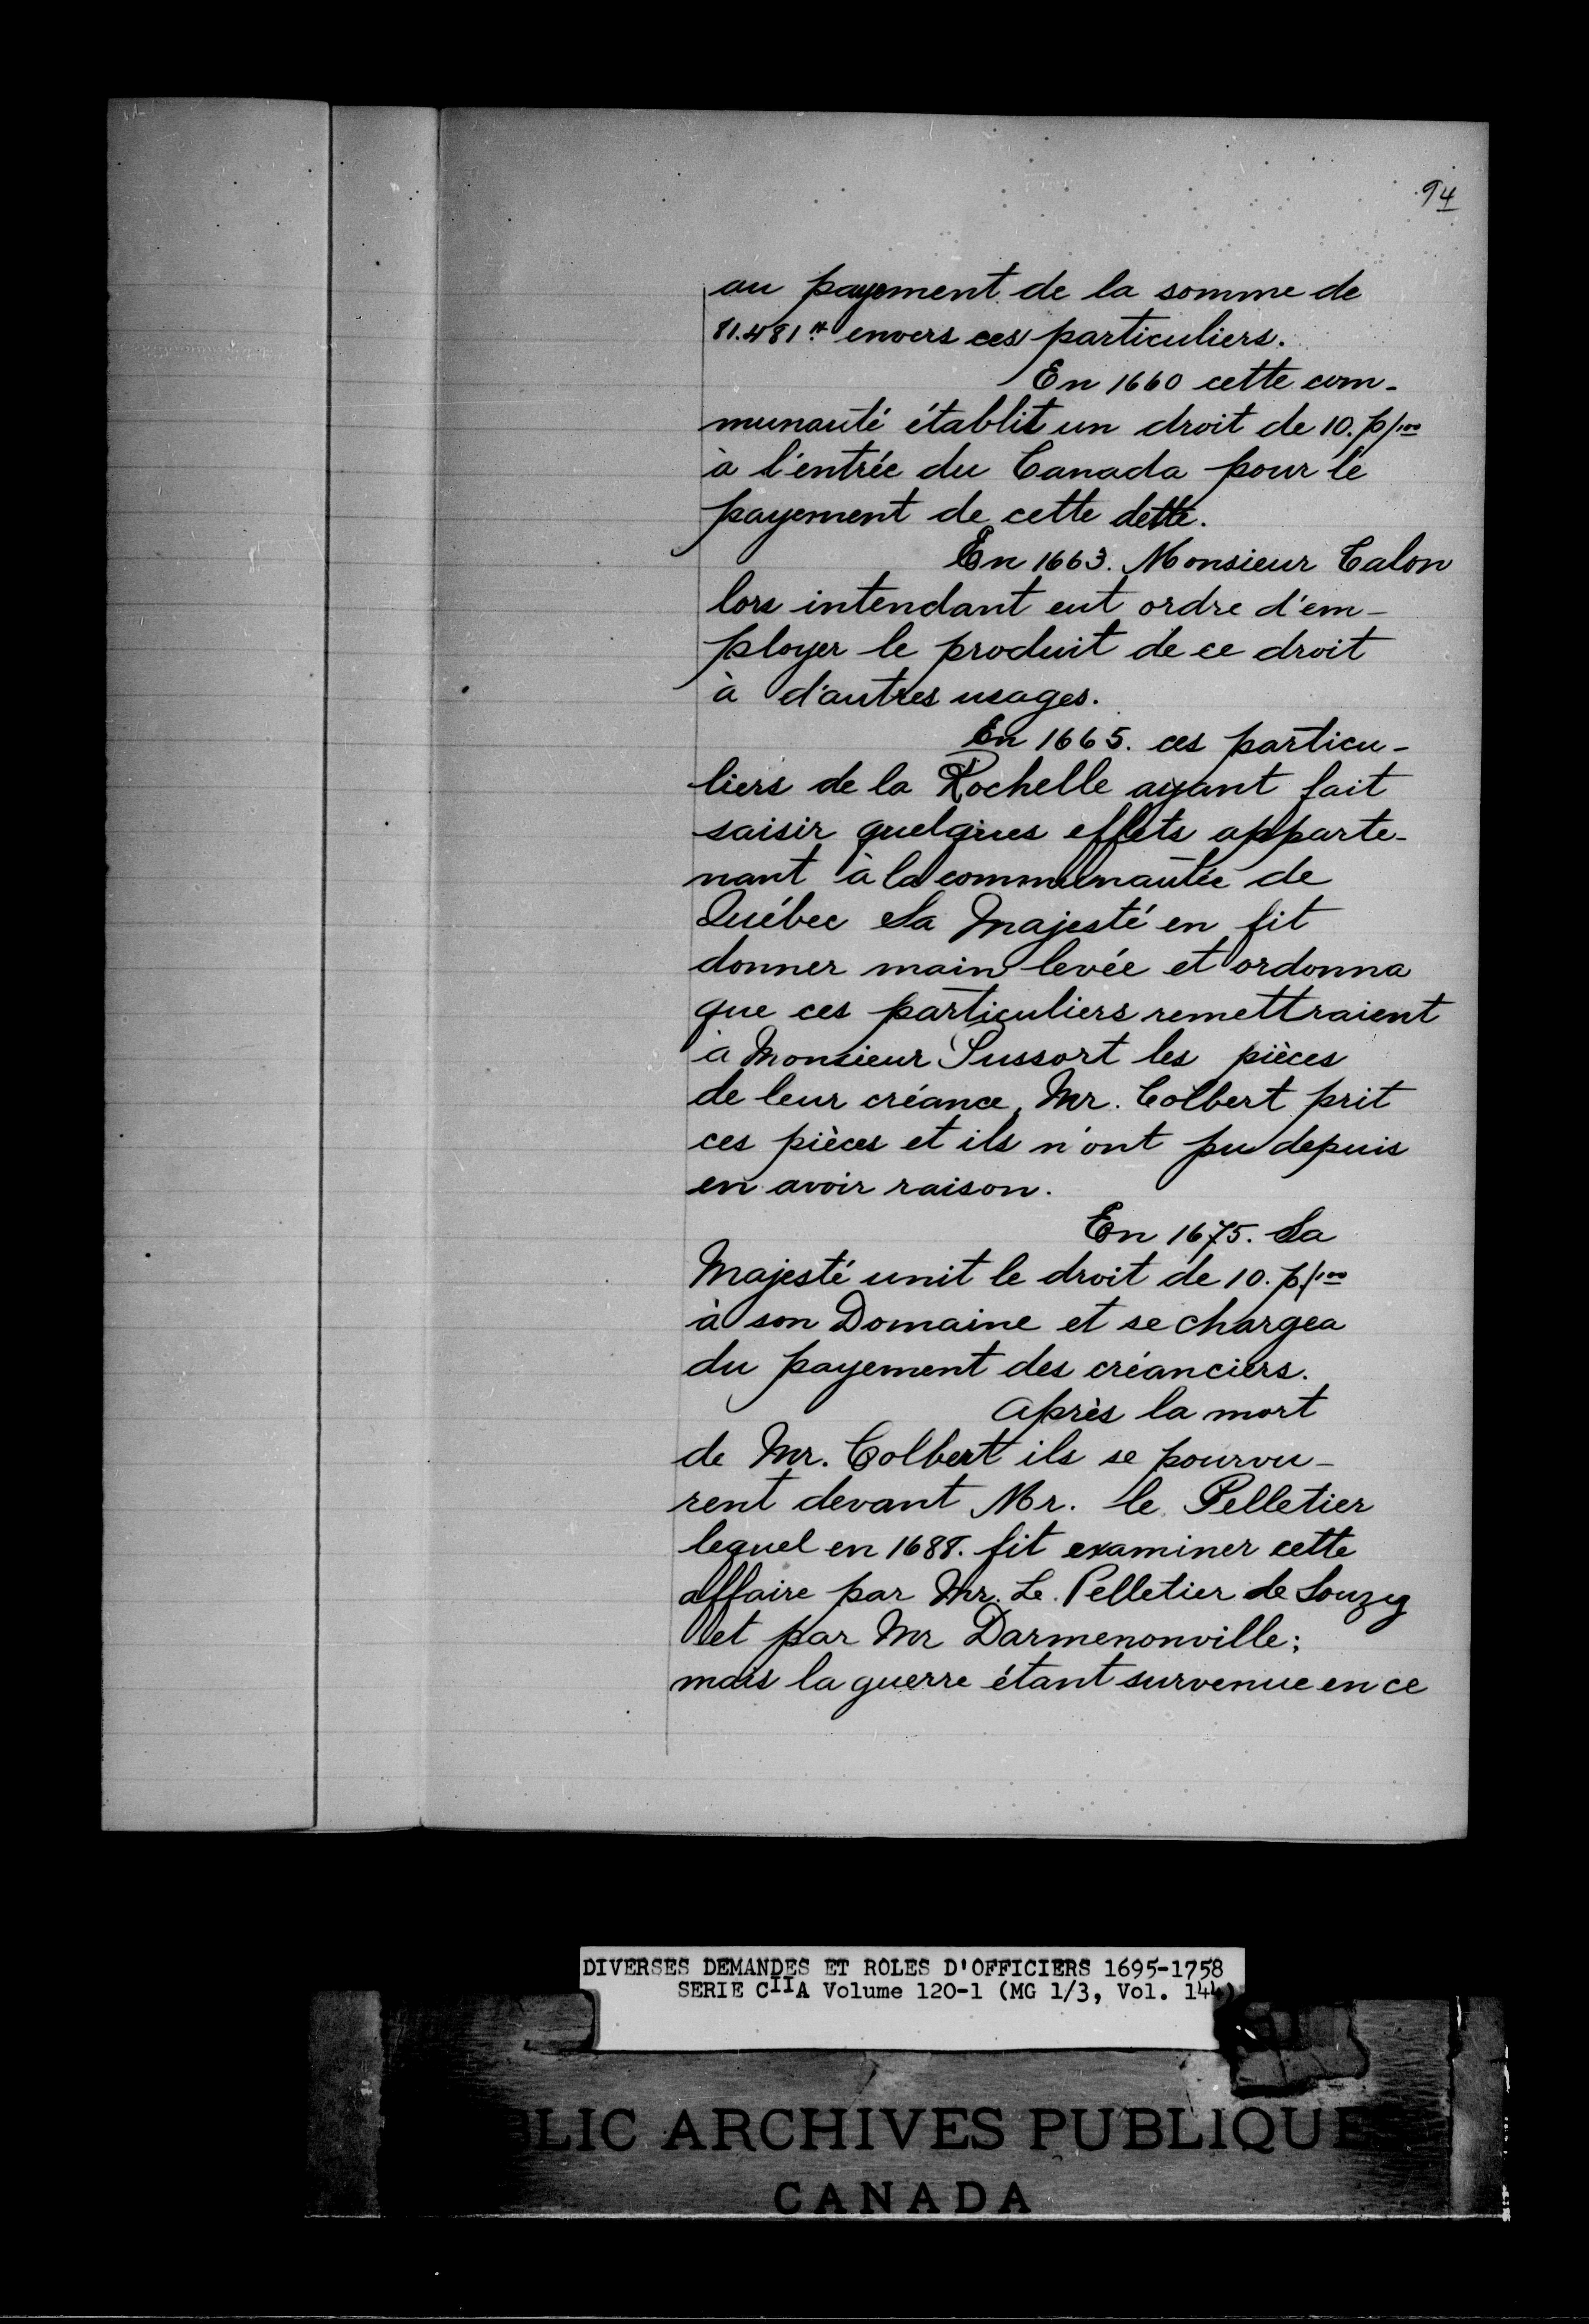 94
au payement de la somme de
81.481 ₶ envers ces particuliers.
En 1660 cette com-
munauté établit un droit de 10. p/100
à l'entrée du Canada pour le
payement de cette dette.
En 1663. Monsieur Talon
lors intendant eut ordre d'em-
ployer le produit de ce droit
à d'autres usages.
En 1665. ces particu-
liers de la Rochelle ayant fait
saisir quelques effets apparte-
nant à la communautée de
Québec Sa Majesté en fit
donner main levée et ordonna
que ces particuliers remettraient
à Monsieur Sussort les pièces
de leur créance, Mr. Colbert prit
ces pièces et ils n'ont pu depuis
en avoir raison.
En 1675. Sa
Majesté unit le droit de 10. p/100
à son Domaine et se chargea
du payement des créanciers.
Après la mort
de Mr. Colbert ils se pourvu-
rent devant Mr. le Pelletier
lequel en 1688. fit examiner cette
affaire par Mr. Le. Pelletier de Souzy
et par Mr Darmenonville;
mais la guerre étant survenue en ce
DIVERSES DEMANDES ET ROLES D'OFFICIERS 1695-1758
SERIE CIIA Volume 120-1 (MG 1/3, Vol. 144)
BLIC ARCHIVES PUBLIQUE
CANADA